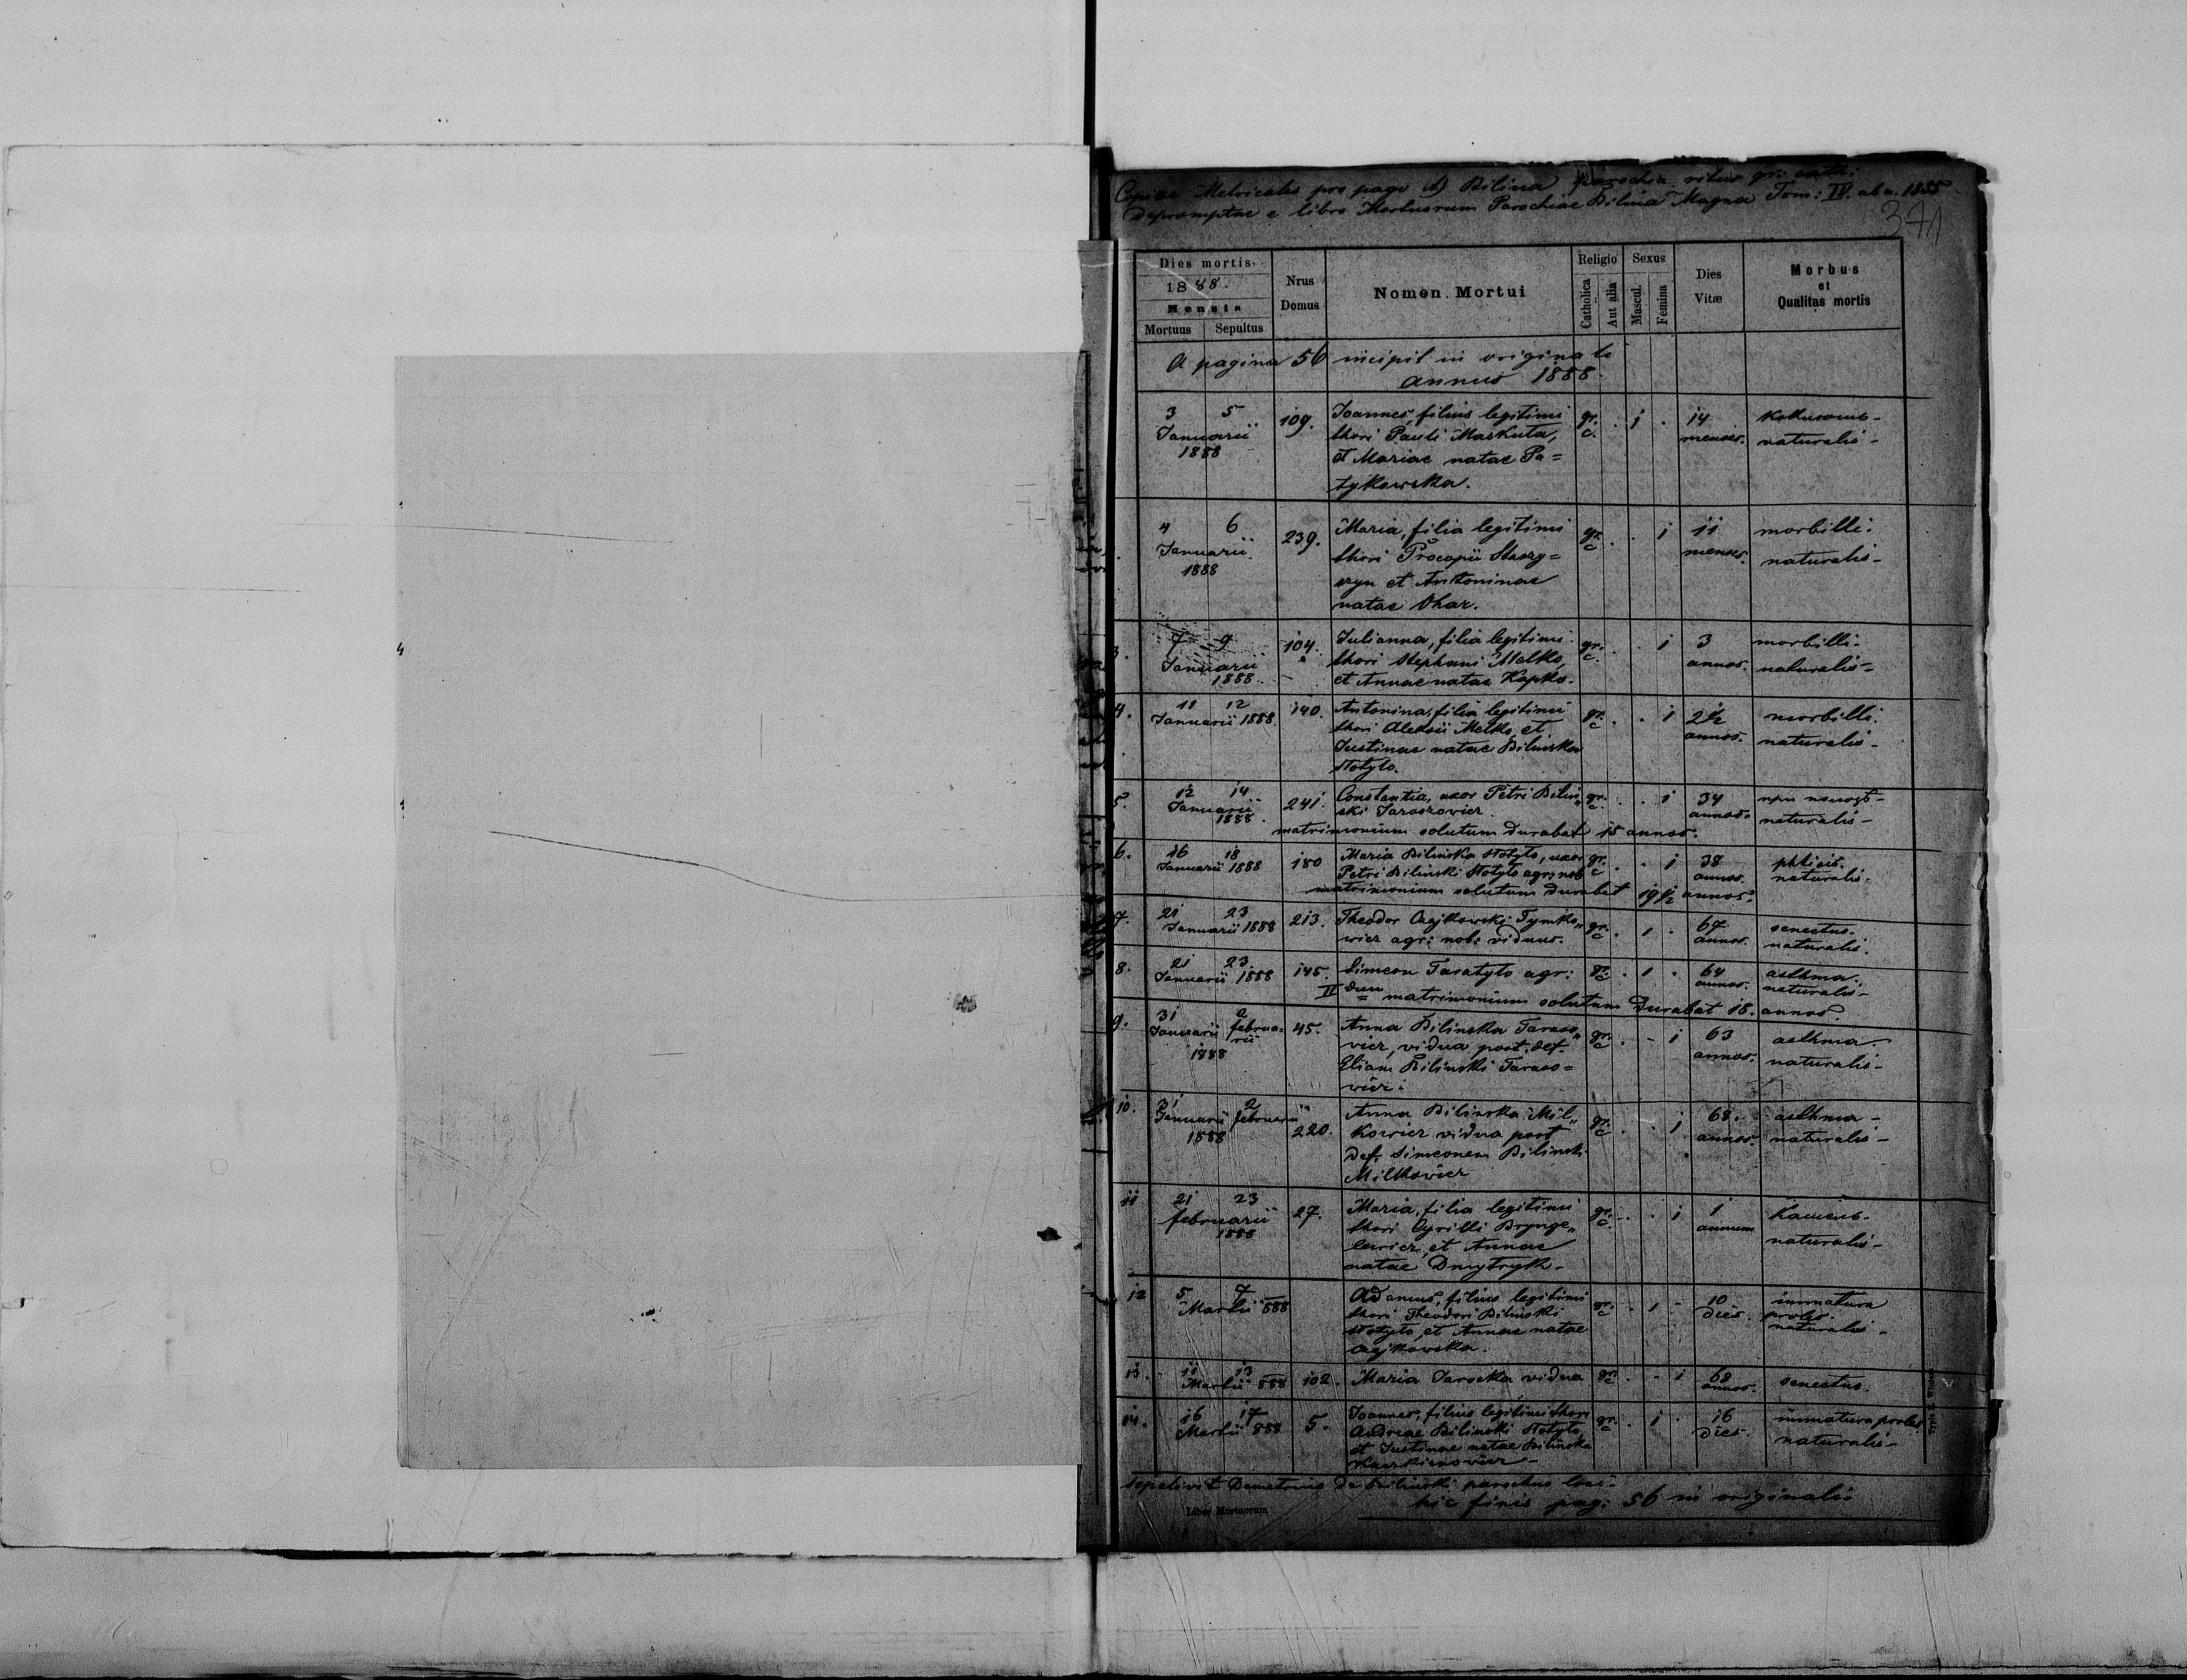 Copiae Metricales pro pago A) Bilina parochia ritus gr: cath:
Depromptae e libro Mortuorum Parochiae Bilina Magna Tom: IV. ab a. 1855
371
Dies mortis Nrus Domus Nomen Mortui Religio Sexus Dies Vitæ Morbus et Qualitas mortis
1888.
Mensis
Mortuus Sepultus Catholica Aut alia Mascul. Femina
A pagina 56 incipit in originale
annus 1888.
3 5 109. Joannes, filius legitimi gr. c. . 1 . 14
Januarii thori Pauli Maskuta, menses. naturalis -
1888 et Mariae natae Pa=
tykowska.
4 6 239. Maria, filia legitimi gr. c . . 1 11 morbilli.
Januarii thori Procopii Staszy= menses. naturalis -
1888 szyn et Antoninae
natae Ohar.
3. 7 9 104. Julianna, filia legitimi gr. c. . . 1 3 morbilli.
Januarii thori Stephani Melko, annos. naturalis -
1888. et Annae natae Hapko.
4. 11 12 140. Antonina, filia legitimi gr. c . . 1 2½ morbilli.
Januarii 1888. thori Alexii Melko, et annos. naturalis -
Justinae natae Bilinska
Stotylo.
5. 12 14 241. Constantia, uxor Petri Bilin„ gr. c. . . 1 34
Januarii ski Jaraszowicz. annos. naturalis -
1888.
matrimonium solutum durabat 15 annos.
6. 16 18 180 Maria Bilinska Stotylo, uxor gr. c . . 1 38 phtisis.
Januarii 1888 Petri Bilinski Stotylo agr: nob: annos. naturalis.
matrimonium solutum durabat 19½ annos.
7. 21 23 213. Theodor Czajkowski Tymko„ gr. c . 1 . 67 senectus.
Januarii 1888 wicz agr: nob: viduus. annos. naturalis.
8. 21 23 145. Simeon Taratylo agr: gr. c . 1 . 64 asthma
Januarii 1888 annos. naturalis -
II dum matrimonium solutum durabat 18. annos.
9. 31 2 45. Anna Bilinska Taraso„ gr. c . - 1 63 asthma.
Januarii februa- vicz, vidua post def. annos. naturalis -
rii
1888 Eliam Bilinski Taraso=
vicz.
10. 31 2 220. Anna Bilinska Mil„ gr. c . . 1 68. asthma -
Januarii februarii kowicz vidua post annos. naturalis -
1888 def. Simeonem Bilinski
Milkowicz
11 21 23 27. Maria, filia legitimi gr. c. . . 1 1
februarii thori Cyrilli Brynge„ annum naturalis -
1888 lewicz, et Annae
natae Dmytryk -
12 5 7 Adamus, filius legitimi gr. c . 1 - 10 immatura
Martii 888 thori Theodori Bilinski dies. proles.
Stotylo, et Annae natae naturalis -
Czajkowska.
13. 11 13 102. Maria Jarocka vidua gr. c . - 1 68 senectus.
Martii 888 annos.
14. 16 17 5. Joannes, filius legitimi thori gr. c . 1 . 16 immatura proles
Martii 888 Andreae Bilinski Stotylo, dies. naturalis -
et Justinae natae Bilinska
sepelivit Demetrius de Bilinski parochus loci.
hic finis pag: 56 in originali
Liber Mortuorum